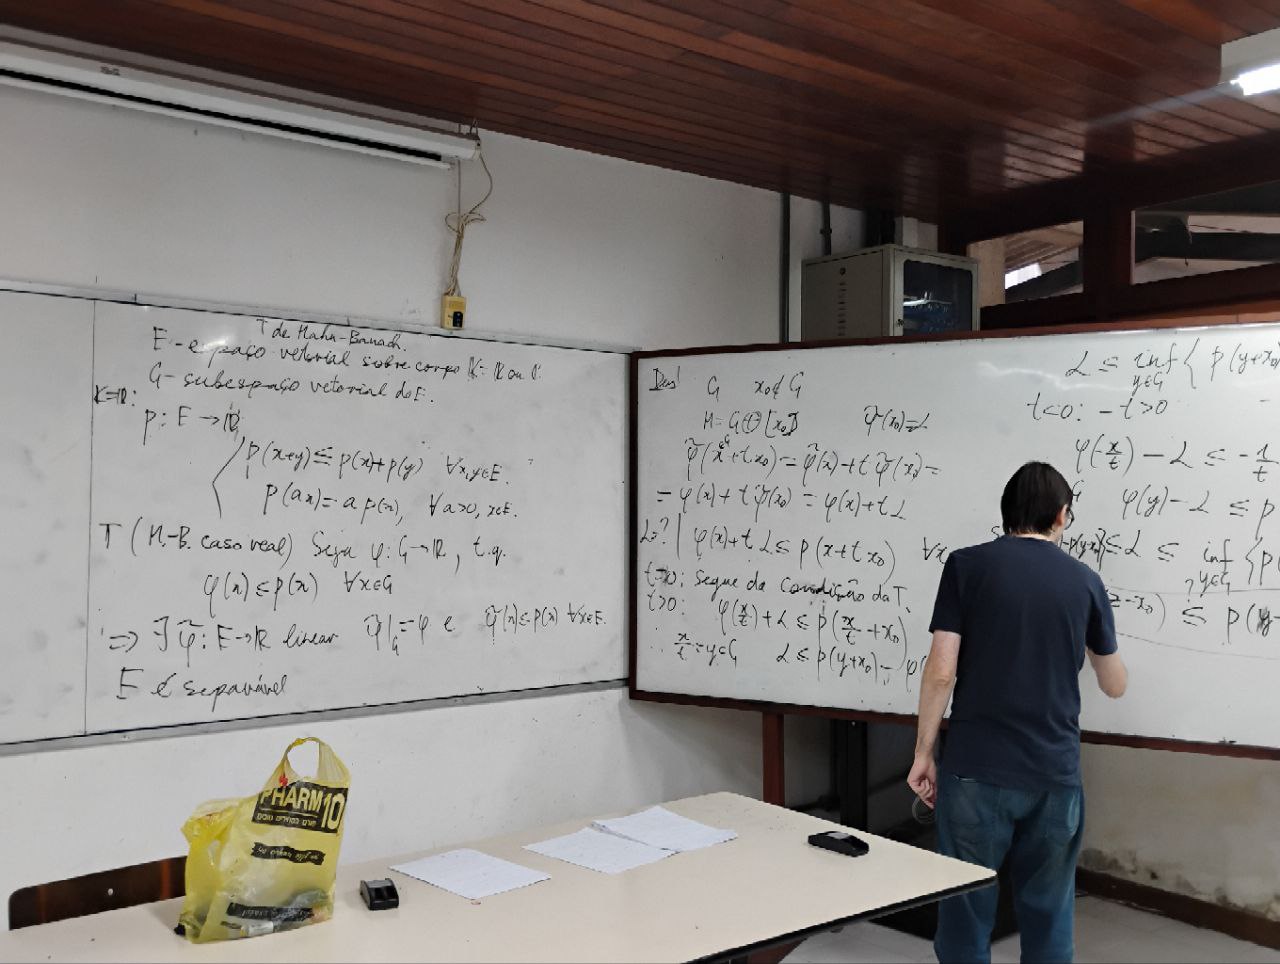 T de Hahn-Banach.
E - espaço vetorial sobre corpo K = ℝ ou ℂ
G - subespaço vetorial do E.
K=ℝ:
p: E → ℝ
p(x+y) ≤ p(x)+p(y) ∀x,y∈E.
p(ax) = a p(x), ∀a>0, x∈E.
T (H.-B. caso real) Seja φ: G→ℝ, t.q.
φ(x) ≤ p(x) ∀x∈G
⇒ ∃ φ̃: E→ℝ linear φ̃|_G = φ e φ̃(x) ≤ p(x) ∀x∈E.
E é separável
G x₀∉G
H = G⊕[x₀] φ̃(x₀)=L
φ̃(x+t x₀) = φ̃(x)+t φ̃(x₀) =
= φ(x)+t φ̃(x₀) = φ(x)+t L
L=? | φ(x)+t L ≤ p(x+t x₀) ∀x
t=0: segue da condição da T.
t>0: φ(x/t)+L ≤ p(x/t+x₀)
∴ x/t = y∈G L ≤ p(y+x₀) - φ(
L ≤ inf y∈G { p(y+x₀)
t<0: -t>0
φ(-x/t) - L ≤ -1/t
φ(y) - L ≤ p
-p(y-x₀)} ≤ L ≤ inf y∈G {p(
z-x₀) ≤ p(y
PHARM 10